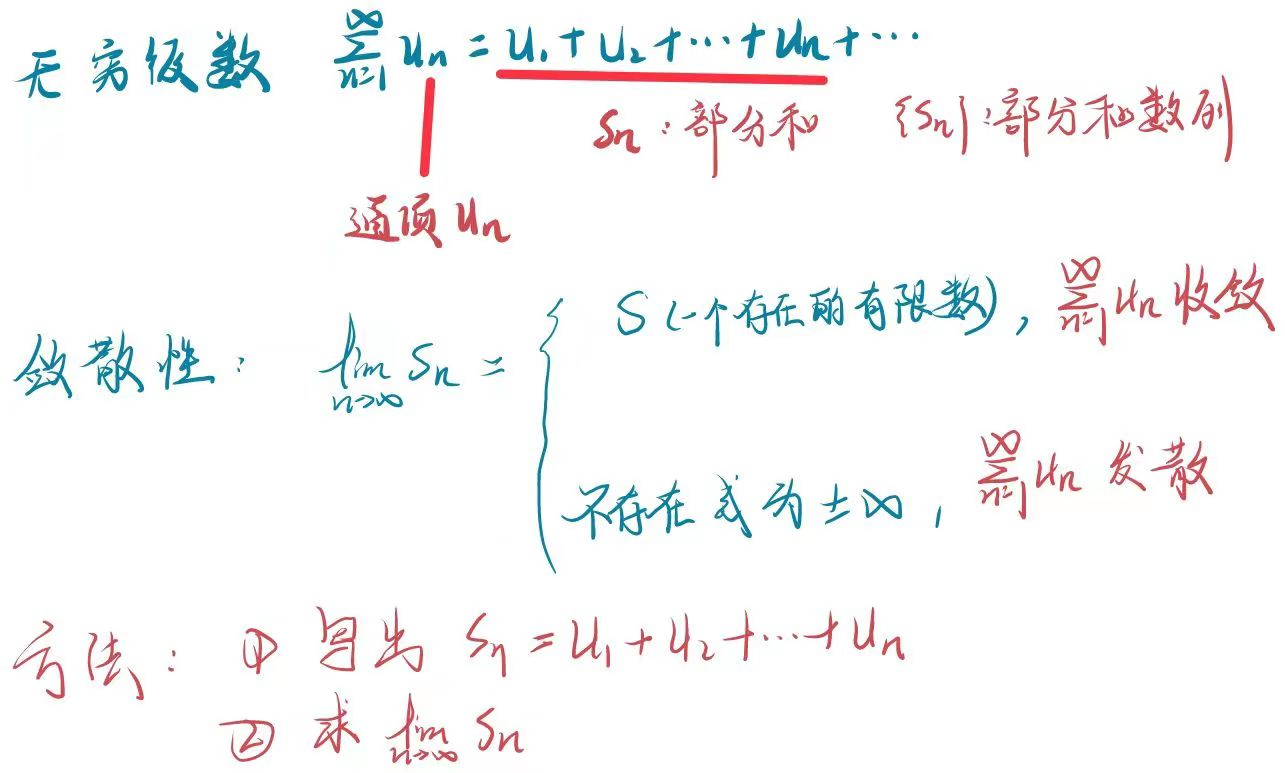 无穷级数 $\sum_{n=1}^{\infty} u_n = u_1 + u_2 + \cdots + u_n + \cdots$
$S_n$：部分和 $\{S_n\}$：部分和数列
通项 $u_n$
敛散性： $\lim_{n \to \infty} S_n =$
$S$ (一个存在的有限数)， $\sum_{n=1}^{\infty} u_n$ 收敛
不存在或为 $\pm\infty$， $\sum_{n=1}^{\infty} u_n$ 发散
方法： ① 写出 $S_n = u_1 + u_2 + \cdots + u_n$
② 求 $\lim_{n \to \infty} S_n$